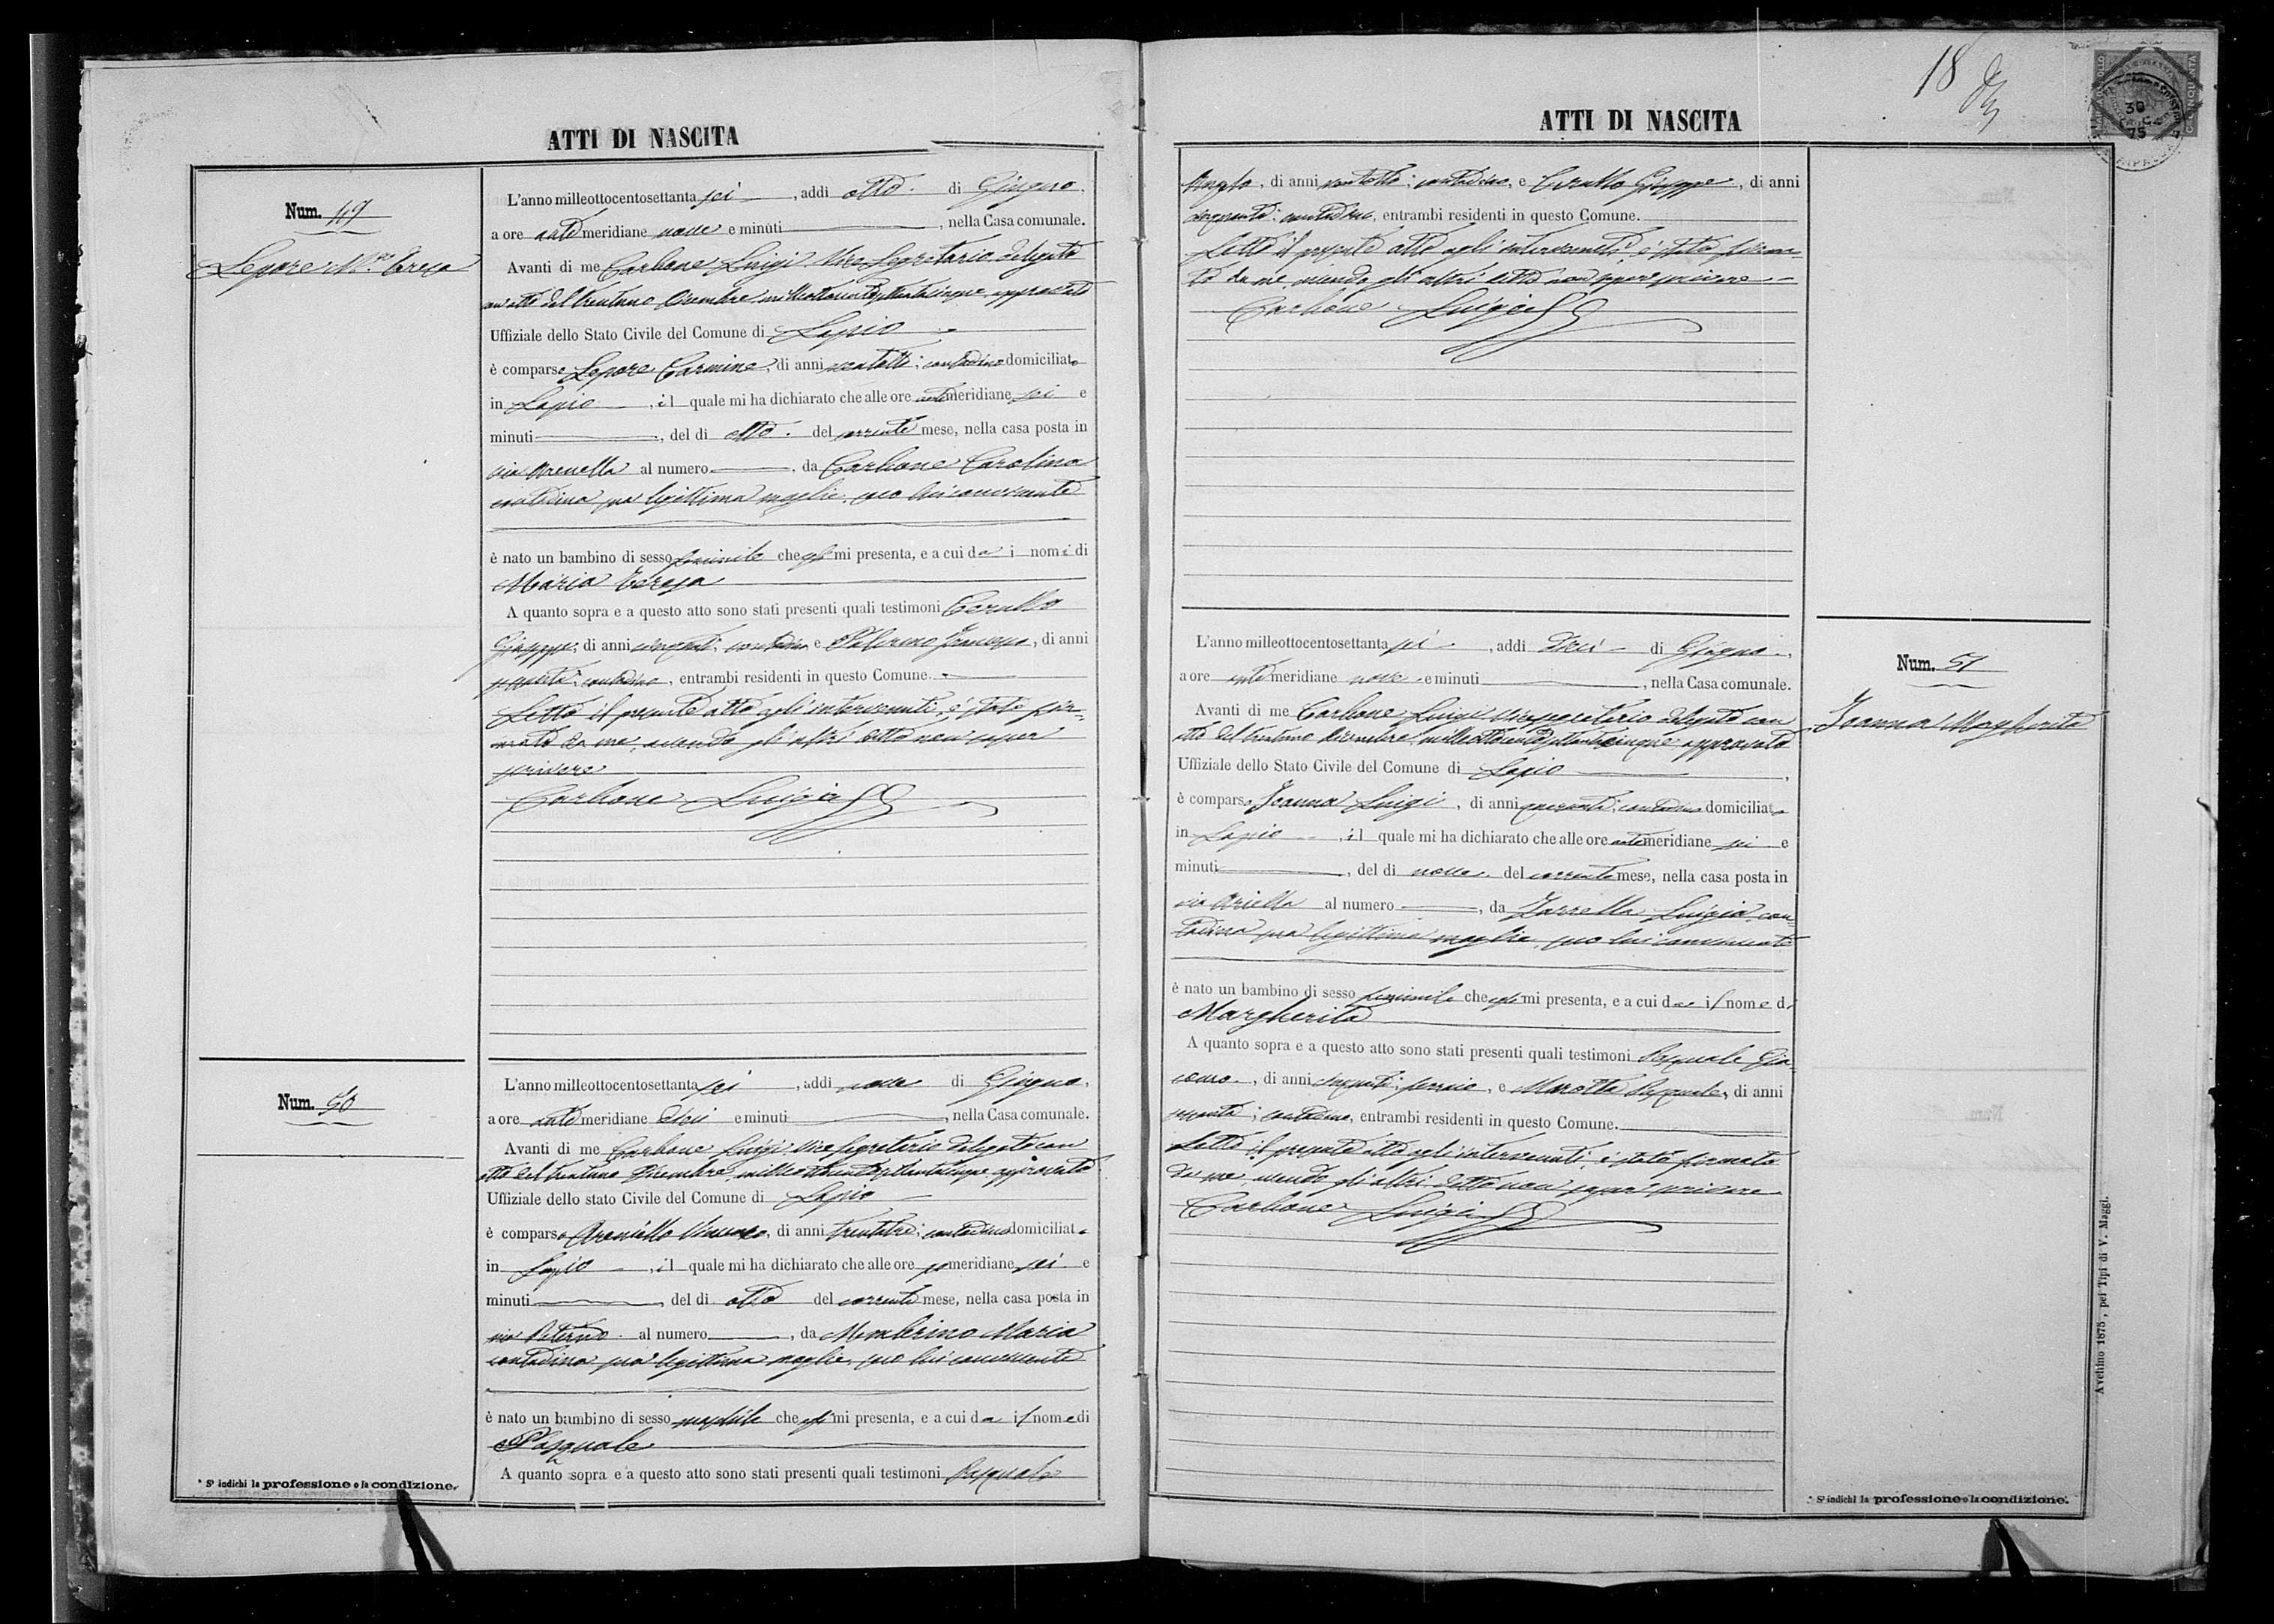 ATTI DI NASCITA
Num. 49
Lepore M.ª Teresa
L'anno milleottocentosettanta sei, addi otto di Giugno,
a ore antemeridiane nove e minuti, nella Casa comunale.
Avanti di me Carbone Luigi Vice Segretario delegato
con atto del trentuno Dicembre milleottocentosettantacinque approvato
Uffiziale dello Stato Civile del Comune di Lapio
è comparso Lepore Carmine, di anni ventotto; contadino domiciliato
in Lapio, il quale mi ha dichiarato che alle ore antemeridiane sei e
minuti, del dì otto del corrente mese, nella casa posta in
via Arenella al numero, da Carbone Carolina
contadina sua legittima moglie, seco lui convivente
è nato un bambino di sesso feminile che egli mi presenta, e a cui da i nomi di
Maria Teresa
A quanto sopra e a questo atto sono stati presenti quali testimoni Cerullo
Giuseppe, di anni cinquanta, contadino e Palerino, di anni
sessanta; contadino, entrambi residenti in questo Comune.
Letto il presente atto agli intervenuti, è stato fir-
mato da me, avendo gli altri detto non saper
scrivere
Carbone Luigi
Num. 50
L'anno milleottocentosettanta sei, addi nove di Giugno,
a ore antemeridiane dieci e minuti, nella Casa comunale.
Avanti di me Carbone Luigi Vice Segretario delegato con
atto del trentuno Dicembre milleottocentosettantacinque approvato
Uffiziale dello stato Civile del Comune di Lapio
è comparso Areniello Vincenzo, di anni trentatre; contadino domiciliato
in Lapio, il quale mi ha dichiarato che alle ore pomeridiane sei e
minuti, del di otto del corrente mese, nella casa posta in
via Paterno al numero, da Mombrino Maria
contadina sua legittima moglie, seco lui convivente
è nato un bambino di sesso maschile che egli mi presenta, e a cui da il nome di
Pasquale
A quanto sopra e a questo atto sono stati presenti quali testimoni Pasquale
* S' indichi la professione o la condizione.
18
ATTI DI NASCITA
30
75
Angelo, di anni ventotto; contadino, e Cerullo Giuseppe, di anni
cinquanta; contadino, entrambi residenti in questo Comune.
Letto il presente atto agli intervenuti, è stato firma-
to da me, avendo gli altri detto non saper scrivere
Carbone Luigi
Num. 51
Joanna Margherita
L'anno milleottocentosettanta sei, addi dieci di Giugno,
a ore antemeridiane nove e minuti, nella Casa comunale.
Avanti di me Carbone Luigi Vicesegretario delegato con
atto del trentuno Dicembre milleottocentosettantacinque approvato
Uffiziale dello Stato Civile del Comune di Lapio,
è comparso Joanna Luigi, di anni quaranta; contadino domiciliato
in Lapio, il quale mi ha dichiarato che alle ore antemeridiane sei e
minuti, del di nove del corrente mese, nella casa posta in
via Ariella al numero, da Zarrella Luigia con-
tadina sua legittima moglie, seco lui convivente
è nato un bambino di sesso feminile che egli mi presenta, e a cui da il nome di
Margherita
A quanto sopra e a questo atto sono stati presenti quali testimoni Pasquale Gia-
como, di anni cinquanta; e Marotta Pasquale, di anni
sessanta; contadino, entrambi residenti in questo Comune.
Letto il presente atto agli intervenuti, è stato firmato
da me, avendo gli altri detto non saper scrivere
Carbone Luigi
* S' indichi la professione o la condizione.
Avellino 1875, pei Tipi di V. Maggi.